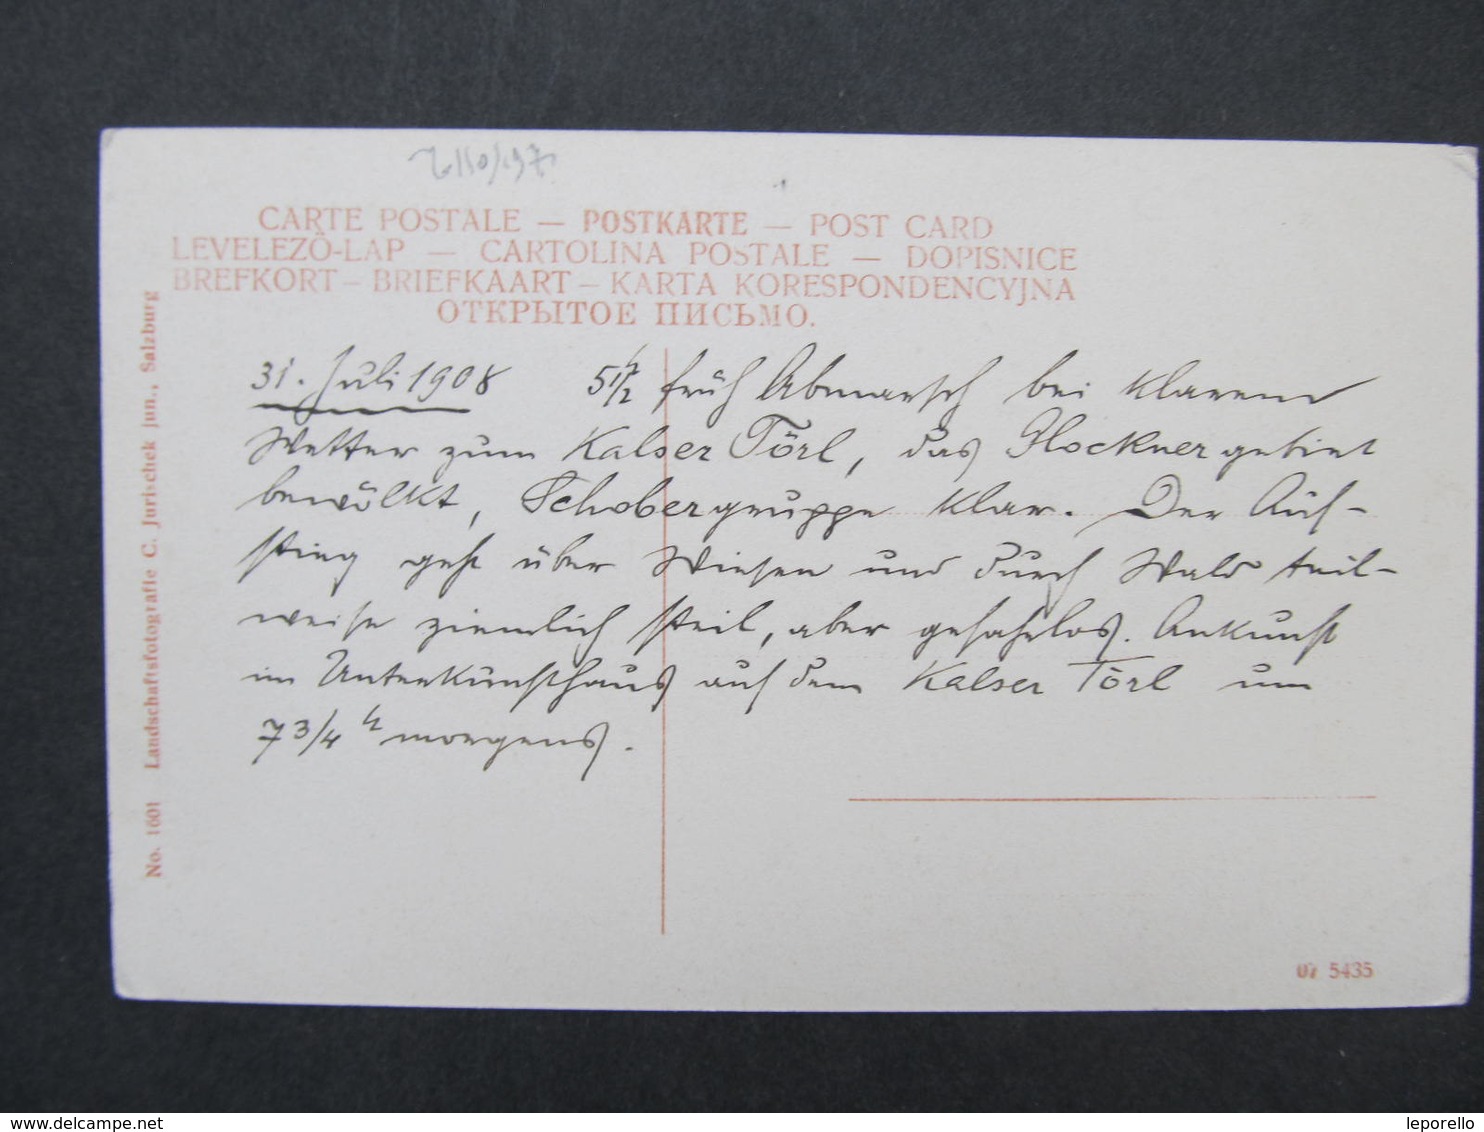 CARTE POSTALE — POSTKARTE — POST CARD
LEVELEZÖ-LAP — CARTOLINA POSTALE — DOPISNICE
BREFKORT — BRIEFKAART — KARTA KORESPONDENCYJNA
ОТКРЫТОЕ ПИСЬМО.
31. Juli 1908 5 1/2 h früh Abmarsch bei klarem
Wetter zum Kalser Törl, das Glocknergebiet
bewölkt, Schobergruppe klar. Der Auf-
stieg geht über Wiesen und durch Wald teil-
weise ziemlich steil, aber gefahrlos. Ankunft
im Unterkunfthaus auf dem Kalser Törl um
7 3/4 h morgens.
No. 1601 Landschaftsfotografie C. Jurischek jun., Salzburg
07 5435
www.delcampe.net
leporello